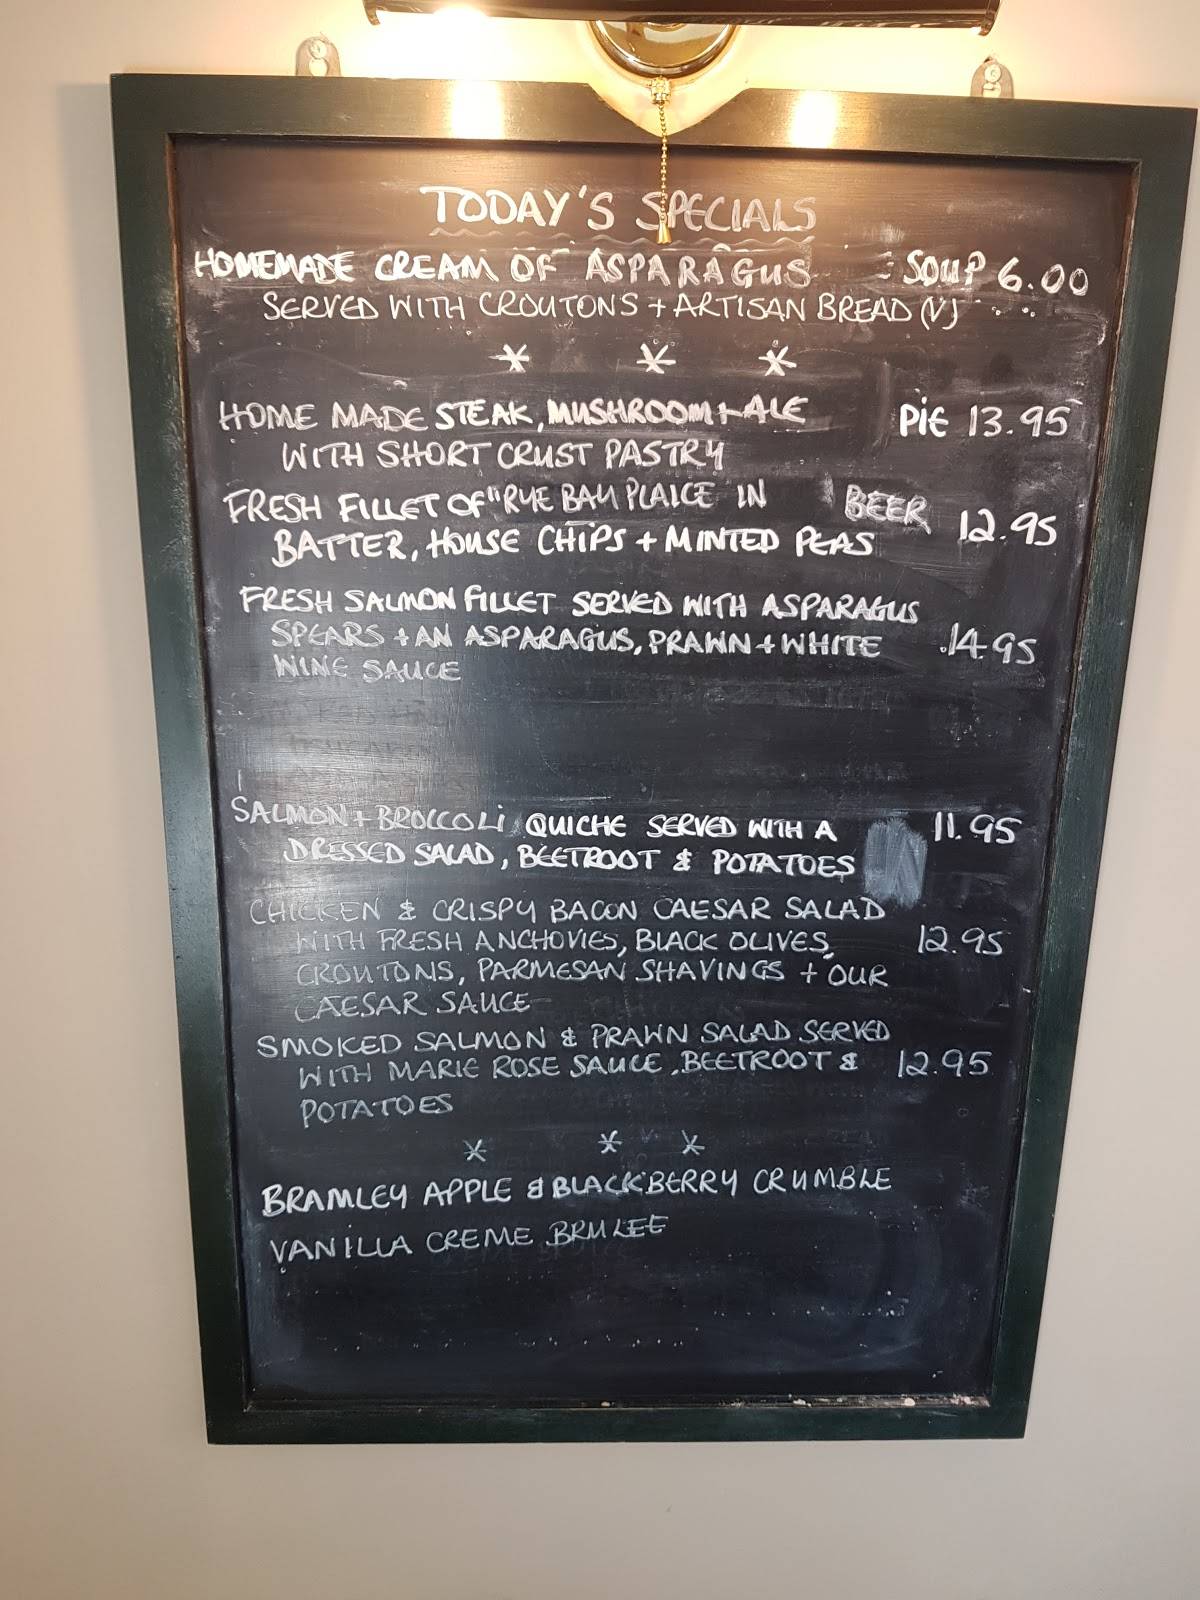 TODAY'S SPECIALS
HOMEMADE CREAM OF ASPARAGUS SOUP 6.00
SERVED WITH CROUTONS + ARTISAN BREAD (V)
* * *
HOME MADE STEAK, MUSHROOM + ALE PIE 13.95
WITH SHORT CRUST PASTRY
FRESH FILLET OF "RYE BAY PLAICE IN BEER
BATTER, HOUSE CHIPS + MINTED PEAS 12.95
FRESH SALMON FILLET SERVED WITH ASPARAGUS
SPEARS + AN ASPARAGUS, PRAWN + WHITE 14.95
WINE SAUCE
SALMON + BROCCOLI QUICHE SERVED WITH A 11.95
DRESSED SALAD, BEETROOT & POTATOES
CHICKEN & CRISPY BACON CAESAR SALAD
WITH FRESH ANCHOVIES, BLACK OLIVES, 12.95
CROUTONS, PARMESAN SHAVINGS + OUR
CAESAR SAUCE
SMOKED SALMON & PRAWN SALAD SERVED
WITH MARIE ROSE SAUCE, BEETROOT & 12.95
POTATOES
* * *
BRAMLEY APPLE & BLACKBERRY CRUMBLE
VANILLA CREME BRULEE